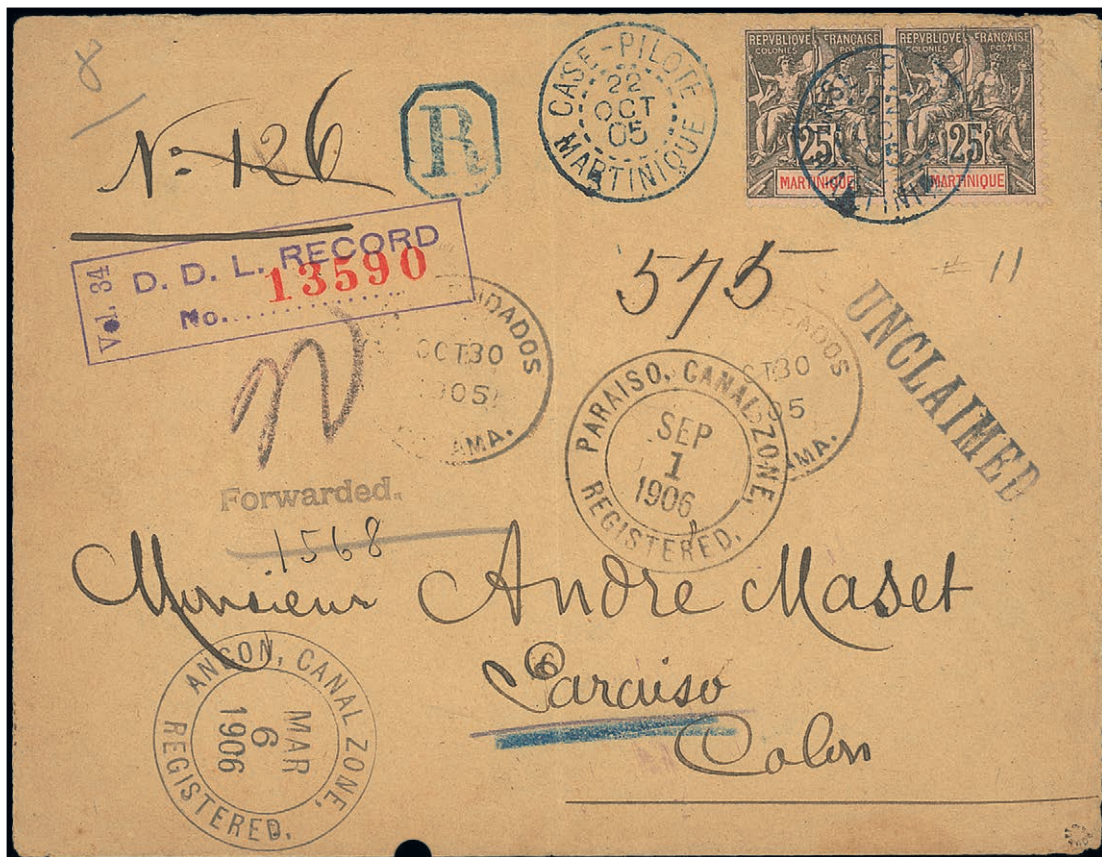 8
CASE-PILOTE
22
OCT
05
MARTINIQUE
REPVBLIQVE FRANÇAISE
COLONIES POSTES
25
MARTINIQUE
REPVBLIQVE FRANÇAISE
COLONIES POSTES
25
MARTINIQUE
No 126
R
Vol. 34
D. D. L. RECORD
No. 13590
575
# 11
OCT 30
OCT 30
UNCLAIMED
PARAISO, CANAL ZONE,
SEP
1
1906
REGISTERED.
Forwarded.
1568
Monsieur Andre Maset
Paraiso
Colon
ANCON, CANAL ZONE,
MAR
6
1906
REGISTERED.